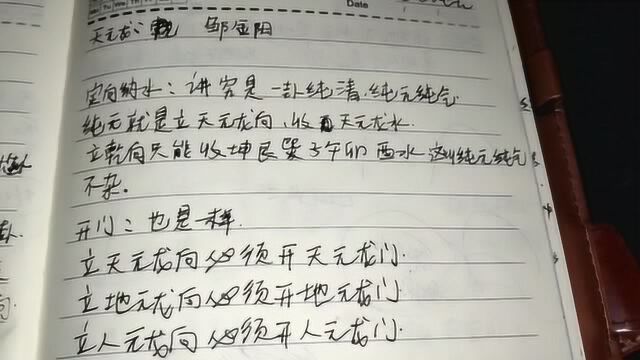 Date
天元龙: 邹金阳
定向纳水: 讲究是一卦纯清.纯元纯气
纯元就是立天元龙向.收天元龙水.
立乾向只能收坤艮巽子午卯酉水这叫纯元纯气
不杂.
开门: 也是一样.
立天元龙向必须开天元龙门.
立地元龙向必须开地元龙门
立人元龙向必须开人元龙门.